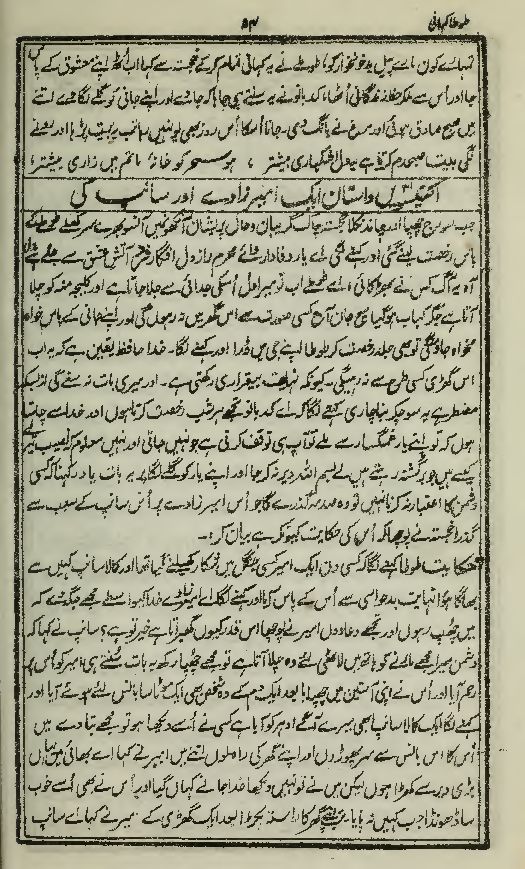 طوطا کہانی ۵۴
تمہارے کون ہارے چہل بدخو خوار کو طوطے نے یہ کہانی تمام کرکے خجستہ سے کہا اب اُٹھ اپنے معشوق کے پاس
جا اور اُس سے ملکر حظ زندگانی اُٹھا، کدبانو نے یہ سنتے ہی چاہا کہ جائے اور اپنے جانی کو گلے لگائے اتنے
میں صبح صادق ہوئی اور مرغ نے بانگ دی۔ جانا اُسکا اُس روز بھی یونہیں رہا تب یہ بیت پڑھا اور رونے
لگی بیت صبحدم کرتا ہے
اکتیسویں داستان ایک امیر زادے اور سانپ کی
جب سورج چھپا اور چاند نکلا خجستہ چاک گریبان و حال پریشان آنکھوں میں آنسو بھرے سر کھلے طوطے کے
پاس رخصت لینے گئی اور کہنے لگی اے یار وفادار محرم راز دل افگار آتش عشق سے جلے
آہ یہ آگ کس نے بھڑکائی اے طوطے اب تو میرا دل اُسکی جدائی سے جلا جاتا ہے اور کلیجہ منہ کو چلا
آتا ہے جگر کباب ہو گیا میں آج کسی صورت سے اس گھر میں نہ رہوں گی اور اپنے جانی کے پاس خواہ
مخواہ جاؤنگی تو بھی جلد رخصت کر طوطا اپنے جی میں ڈرا اور کہنے لگا۔ خدا حافظ یقین ہے کہ یہ اب
اس گھڑی کسی طرح سے نہ رہیگی۔ کیونکہ نہایت بیقراری رکھتی ہے۔ اور میری بات نہ سنے گی
مضطر ہے یہ سوچکر بناچاری کہنے لگا کہ اے کدبانو تجھے ہر شب رخصت کرتا ہوں اور خدا سے چاہتا
ہوں کہ تو اپنے یار غمگسار سے ملے تو آپ ہی توقف کرتی ہے جو نہیں جاتی اور نہیں معلوم کہ نصیب تیرے
کیسے ہیں جو برگشتہ رہتے ہیں لے بسم اللہ دیر نہ کر جا اور اپنے یار کو گلے لگا پر یہ بات یاد رکھنا کسی
دشمن کا اعتبار نہ کرنا نہیں تو وہ صدمہ گذرے گا جو اُس امیر زادے پر اُس سانپ کے سبب سے
گذرا خجستہ نے پوچھا کہ اُس کی حکایت کیونکر ہے بیان کر:-
حکایت طوطا کہنے لگا کہ کسی دن ایک امیر کسی جنگل میں شکار کھیلنے گیا تھا اور کالا سانپ کہیں سے
بھاگا ہوا نہایت بدحواسی سے اُس کے پاس آیا اور کہنے لگا اے امیر زادے خدا کے واسطے مجھے جگہ دے کہ
میں چھپ رہوں اور تجھے دعا دوں امیر نے پوچھا اس قدر کیوں گھبراتا ہے خیر تو ہے؟ سانپ نے کہا کہ
دشمن میرا مجھے مارنے کو ہاتھ میں لاٹھی لئے وہ چلا آتا ہے تو مجھے چھپا رکھ یہ بات سنتے ہی امیر کو اُس پر
رحم آیا اور اُس نے اپنی آستین میں چھپا یا بعد ایک دم کے وہ شخص بھی ایک موٹا سا بانس لئے ہوئے آیا اور
کہنے لگا ایک کالا سانپ ابھی میرے آگے ادہر کو آیا ہے کسی نے اُسے دیکھا ہو تو مجھے بتا دے میں
اُس کا اس بانس سے سر پھوڑ دوں اور اپنے گھر کی راہ لوں اتنے میں امیر نے کہا اے بھائی میں یہاں
بڑی دیر سے کھڑا ہوں لیکن میں نے تو نہیں دیکھا خدا جانے کہاں گیا اور اُس نے بھی اُسے خوب
سا ڈھونڈا جب کہیں نہ پایا تب گھر کا راستہ پکڑا بعد ایک گھڑی کے امیر نے کہا اے سانپ